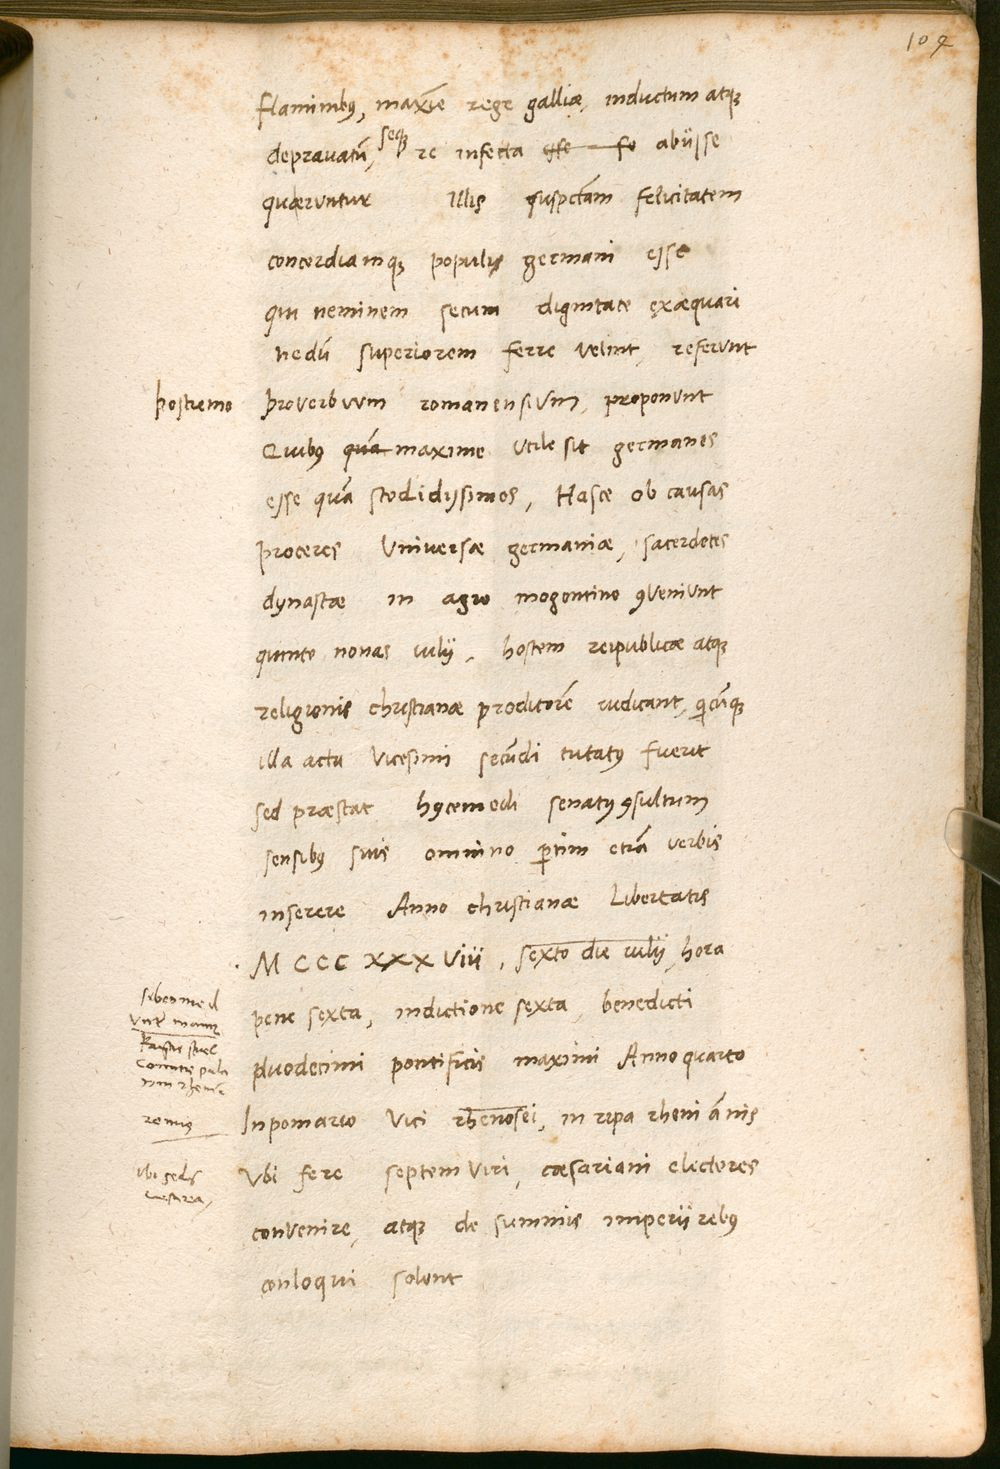 109
flaminibꝰ, maxīe rege galliæ, inductum atqꝫ
deprauatū, seqꝫ re infecta esse se abiisse
quæruntur illis suspctam felicitatem
concordiamqꝫ populis germani esse
qui neminem secum dignitate exæquari
nedū superiorem ferre velint, referunt
postremo proverbium romanensium, proponunt
Quibꝰ quā maxime utile sit germanos
esse quā stolidissimos, Hasce ob causas
proceres Universæ germaniæ, sacerdotes
dynastæ in agro mogontino ꝯveniunt
quinto nonas iulij, hostem reipublicæ atqꝫ
religionis christianæ proditorē iudicant, qicūqꝫ
illa acta vicesimi secūdi tutatꝰ fuerit
sed præstat hycemodi senatꝰ ꝯsultum
sensibꝰ suis omnino ꝑtim etiā verbis
inserere Anno christianæ Libertatis
M CCC XXX Viii, sexto die iulij, hora
pene sexta, indictione sexta, benedicti
duodecimi pontificis maximi Anno quarto
In pomario Vici rhenosei, in ripa rheni āmis
Ubi fere septem viri, cæsariani electores
convenire, atqꝫ de summis imperii rebꝰ
conloqui solent
remus
ibi sedis